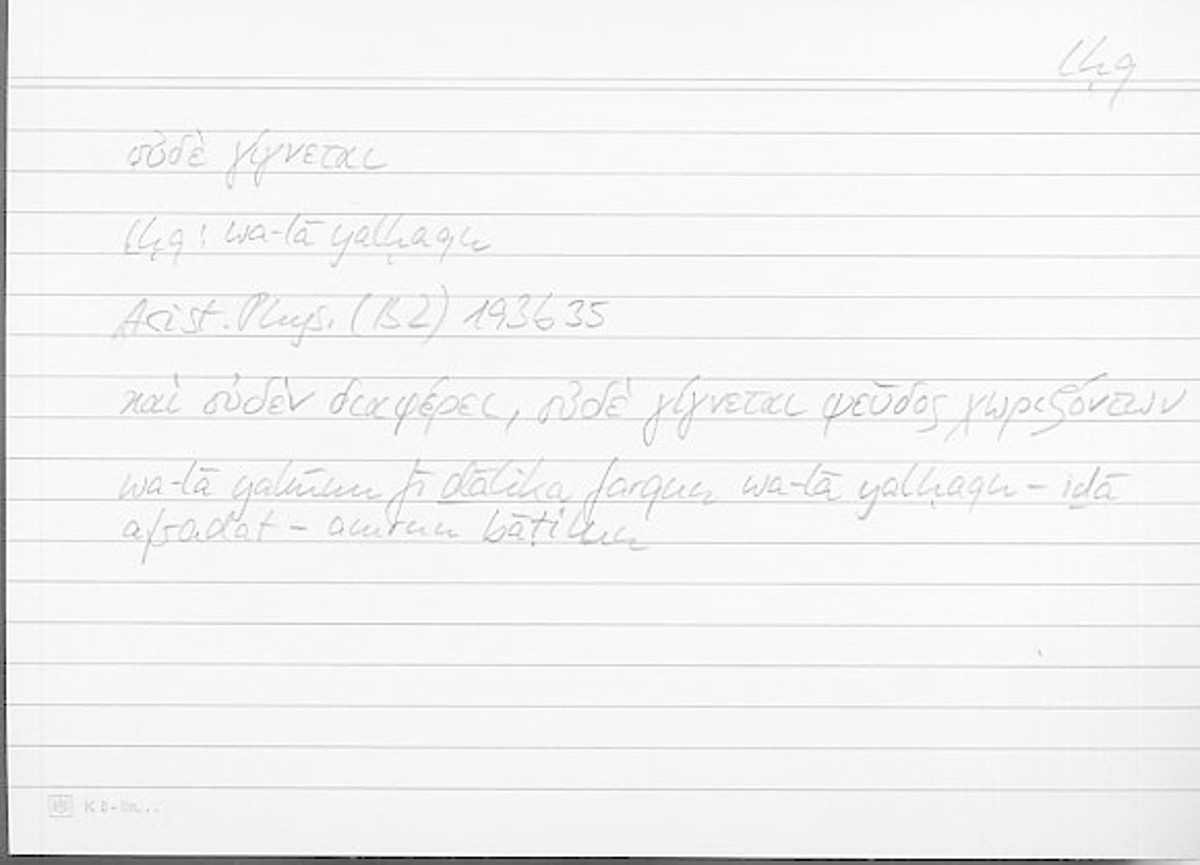 lḥq
οὐδὲ γίγνεται
lḥq: wa-lā yalḥaqu
Arist. Phys. (B2) 193b35
καὶ οὐδὲν διαφέρει, οὐδὲ γίγνεται ψεῦδος χωριζόντων
wa-lā yakūnu fī ḏālika farqun wa-lā yalḥaqu – iḏā
afradat – amrun bāṭilun